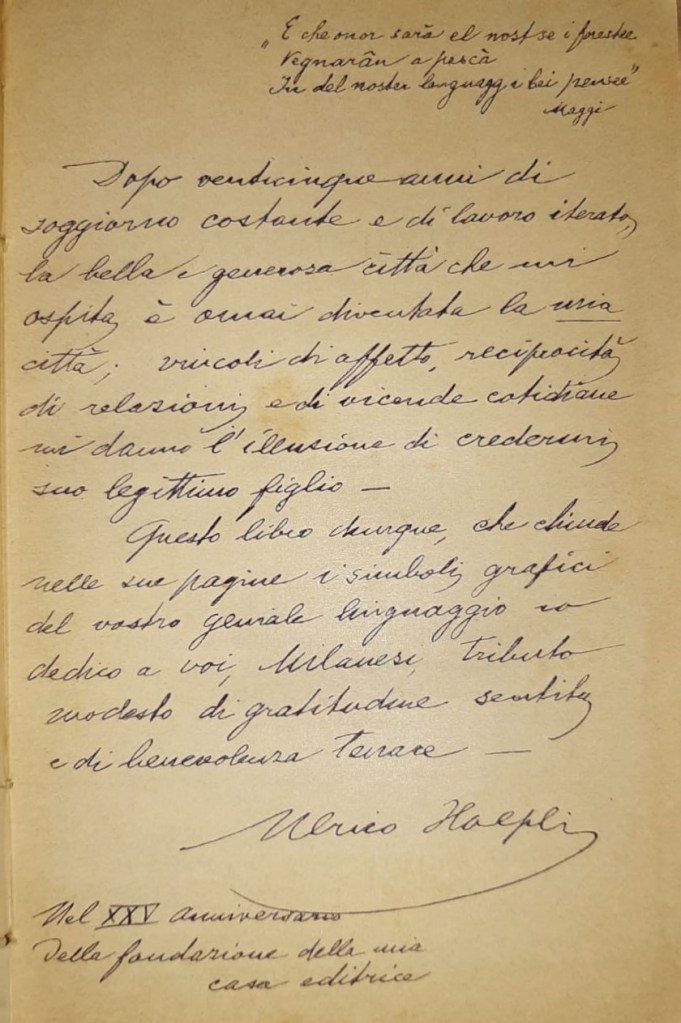 „E che onor sarà el nost se i forestee
Vegnarân a pescà
In del noster lenguagg i bei pensee"
Maggi
Dopo venticinque anni di
soggiorno costante e di lavoro iterato,
la bella e generosa città che mi
ospita, è omai diventata la mia
città; vincoli di affetto, reciprocità
di relazioni, e di vicende cotidiane
mi danno l'illusione di credermi
suo legittimo figlio —
Questo libro dunque, che chiude
nelle sue pagine i simboli grafici
del vostro geniale linguaggio io
dedico a voi, Milanesi, tributo
modesto di gratitudine sentita
e di benevolenza tenace —
Ulrico Hoepli
Nel XXV anniversario
della fondazione della mia
casa editrice